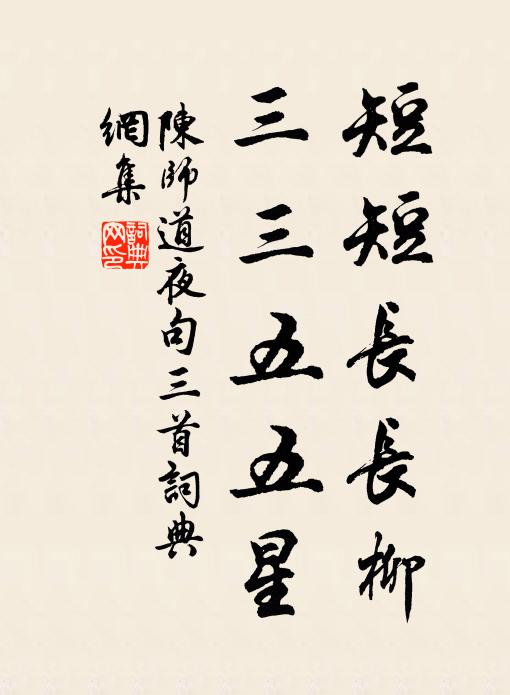 短短長長柳
三三五五星
陳師道夜句三首詞典
網集
詞典
网印